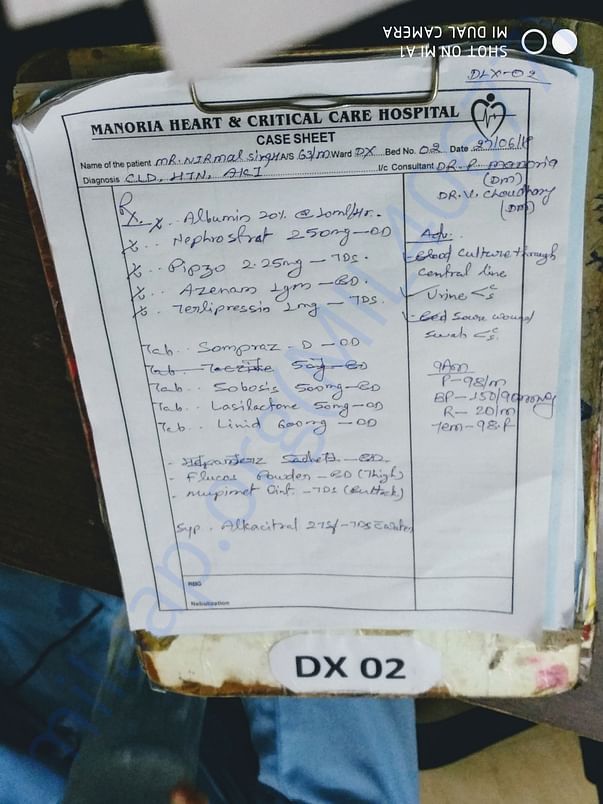 SHOT ON MI A1
MI DUAL CAMERA
DLX-02
MANORIA HEART & CRITICAL CARE HOSPITAL
CASE SHEET
Name of the patient MR. NIRMAL Singh A/S 63/M Ward DX Bed No. 02 Date 27/06/18
Diagnosis CLD, HTN, AKI I/c Consultant DR. P. Manoria
(DM)
DR. V. Choudhary
(DM)
Rx.
Albumin 20% @ 10ml/Hr.
Nephrostrat 250mg - OD
Pipzo 2.25mg - TDS.
Azenam 1gm - BD.
Terlipressin 1mg - TDS.
Tab. Sompraz - D - OD
Tab. 50g - BD
Tab. Sobosis 500mg - BD
Tab. Lasilactone 50mg - OD
Tab. Linid 600mg - OD
Sachets - BD.
- Flucos Powder - BD (Thigh)
- Mupimet Oint. - TDS (Buttock)
Syp. Alkacitral 2TSf - TDS
Adv:
- Blood culture through
central line
Urine < c s
- Bed Sore wound
swab < c s.
9Am
P - 98/m
BP - 150/90mmHg
R - 20/m
Tem - 98.F
RBG
Nebulization
DX 02
milaap.org